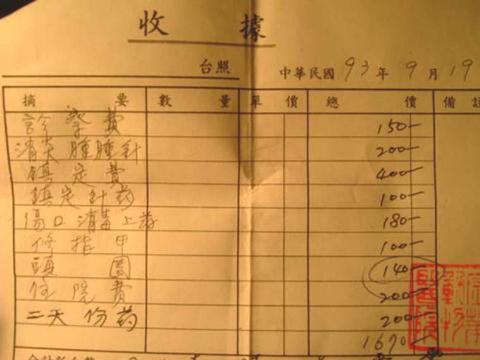 收 據
台照 中華民國 93 年 9 月 19
摘 要 數 量 單 價 總 價 備 註
診察費 150-
消炎腫腫針 200-
鎮定費 400-
鎮定針药 100-
傷口消毒上药 180-
修指甲 100-
頭圈 140-
住院費 200-
二天份药 200-
1670-